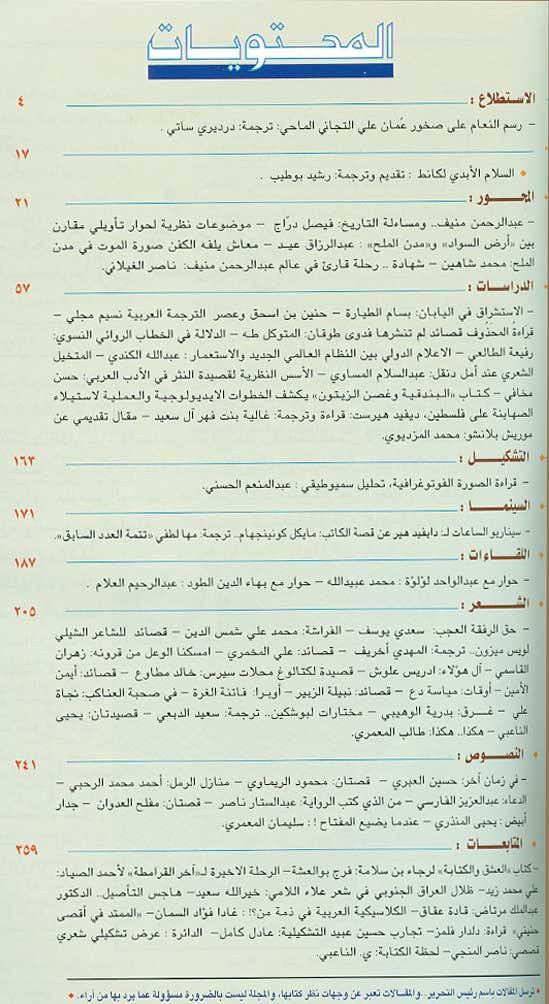 المحتويات
الاستطلاع : ٤
– رسم النعام على صخور عُمان علي التجاني الماحي: ترجمة: درديري ساتي .
١٧
السلام الأبدي لكانط : تقديم وترجمة: رشيد بوطيب .
المحور : ٢١
– عبدالرحمن منيف.. ومساءلة التاريخ: فيصل درّاج – موضوعات نظرية لحوار تأويلي مقارن
بين «أرض السواد» و«مدن الملح» : عبدالرزاق عيد – معاش يلفه الكفن صورة الموت في مدن
الملح: محمد شاهين – شهادة .. رحلة قارئ في عالم عبدالرحمن منيف: ناصر الغيلاني.
الدراسات : ٥٧
– الاستشراق في اليابان: بسام الطيارة – حنين بن اسحق وعصر الترجمة العربية نسيم مجلي –
قراءة المحذُوف قصائد لم تنشرها فدوى طوقان: المتوكل طه – الدلالة في الخطاب الروائي النسوي:
رفيعة الطالعي – الاعلام الدولي بين النظام العالمي الجديد والاستعمار : عبدالله الكندي – المتخيل
الشعري عند أمل دنقل: عبدالسلام المساوي – الأسس النظرية لقصيدة النثر في الأدب العربي: حسن
مخافي – كتاب «البندقية وغصن الزيتون» يكشف الخطوات الايديولوجية والعملية لاستيلاء
الصهاينة على فلسطين، ديفيد هيرست: قراءة وترجمة: غالية بنت فهر آل سعيد – مقال تقديمي عن
موريش بلانشو: محمد المزديوي.
التشكيل : ١٦٣
– قراءة الصورة الفوتوغرافية، تحليل سميوطيقي : عبدالمنعم الحسني.
السينما : ١٧١
– سيناريو الساعات لـ: دايفيد هير عن قصة الكاتب: مايكل كونينجهام.. ترجمة: مها لطفي «تتمة العدد السابق».
اللقاءات : ١٨٧
– حوار مع عبدالواحد لؤلؤة : محمد عبيدالله – حوار مع بهاء الدين الطود : عبدالرحيم العلام .
الشعر : ٢٠٥
– حق الرفقة العجب: سعدي يوسف – الفراشة: محمد علي شمس الدين – قصائد للشاعر الشيلي
لويس ميزون.. ترجمة: المهدي أخريف – قصائد: علي المخمري – امسكنا الوعل من قرونه: زهران
القاسمي – آل هؤلاء: ادريس علوش – قصيدة لكتالوغ محلات سيرس: خالد مطاوع – قصائد: أيمن
الأمين – أوقات: مياسة دع – قصائد: نبيلة الزبير – أوبرا: فاتنة الغرة – في صحبة العناكب: نجاة
علي – غرق: بدرية الوهيبي – مختارات لبوشكين.. ترجمة: سعيد الدبعي – قصيدتان: يحيى
الناعبي – هكذا.. هكذا: طالب المعمري.
النصوص : ٢٤١
– في زمان آخر: حسين العبري – قصتان: محمود الريماوي – منازل الرمل: أحمد محمد الرحبي –
الدعاء: عبدالعزيز الفارسي – من الذي كتب الرواية: عبدالستار ناصر – قصتان: مفلح العدوان – جدار
أبيض: يحيى المنذري – عندما يضيع المفتاح ! : سليمان المعمري.
المتابعات : ٢٥٩
– كتاب «العشق والكتابة» لرجاء بن سلامة: فرج بوالعشة– الرحلة الاخيرة لـ«آخر القرامطة» لأحمد الصياد:
علي محمد زيد– ظلال العراق الجنوبي في شعر علاء اللامي: خيرالله سعيد– هاجس التأصيل.. الدكتور
عبدالملك مرتاض: قادة عقاق– الكلاسيكية العربية في ذمة من؟! : غادا فؤاد السمان– «الممتد في أقصى
حنيني» قراءة: دلدار فلمز– تجارب حسين عبيد التشكيلية: عادل كامل– الدائرة : عرض تشكيلي شعري
قصصي: ناصر المنجي– لحظة الكتابة: ي. الناعبي.
ترسل المقالات باسم رئيس التحرير .. والمقالات تعبر عن وجهات نظر كتابها، والمجلة ليست بالضرورة مسؤولة عما يرد بها من آراء.